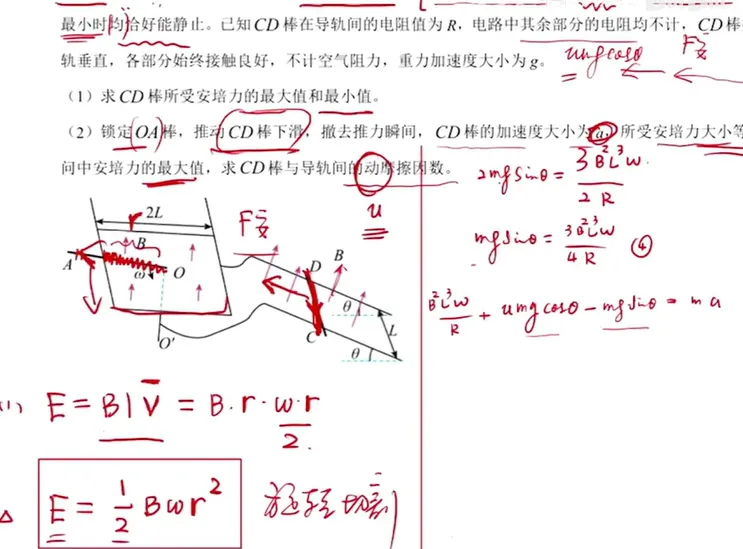 最小时均恰好能静止。已知CD棒在导轨间的电阻值为R，电路中其余部分的电阻均不计，CD棒
轨垂直，各部分始终接触良好，不计空气阻力，重力加速度大小为g。
umgcosθ
F安
（1）求CD棒所受安培力的最大值和最小值。
（2）锁定OA棒，推动CD棒下滑，撤去推力瞬间，CD棒的加速度大小为a，所受安培力大小等
问中安培力的最大值，求CD棒与导轨间的动摩擦因数。
u
2L
r
B
A
O
ω
O'
F安
D
B
θ
L
C
θ
2mgsinθ = 3B²L³w / 2R
mgsinθ = 3B²L³w / 4R ④
B²L³w / R + umgcosθ - mgsinθ = ma
E = Blv̄ = B·r·w·r / 2.
E = 1/2 Bwr²